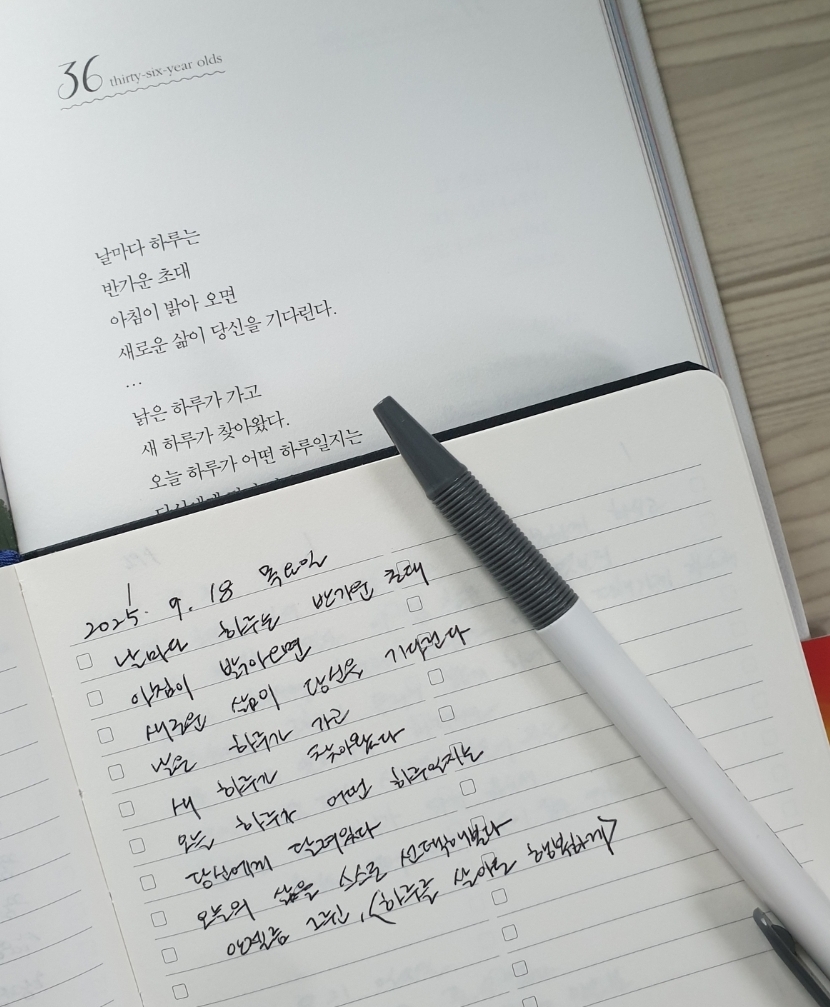 36 thirty-six-year olds
날마다 하루는
반가운 초대
아침이 밝아 오면
새로운 삶이 당신을 기다린다.
...
낡은 하루가 가고
새 하루가 찾아왔다.
오늘 하루가 어떤 하루일지는
2025. 9. 18 목요일
날마다 하루는 반가운 초대
아침이 밝아오면
새로운 삶이 당신을 기다린다
낡은 하루가 가고
새 하루가 찾아왔다
오늘 하루가 어떤 하루일지는
당신에게 달려있다
오늘의 삶을 스스로 선택해본다
하루를 살아도 행복하게